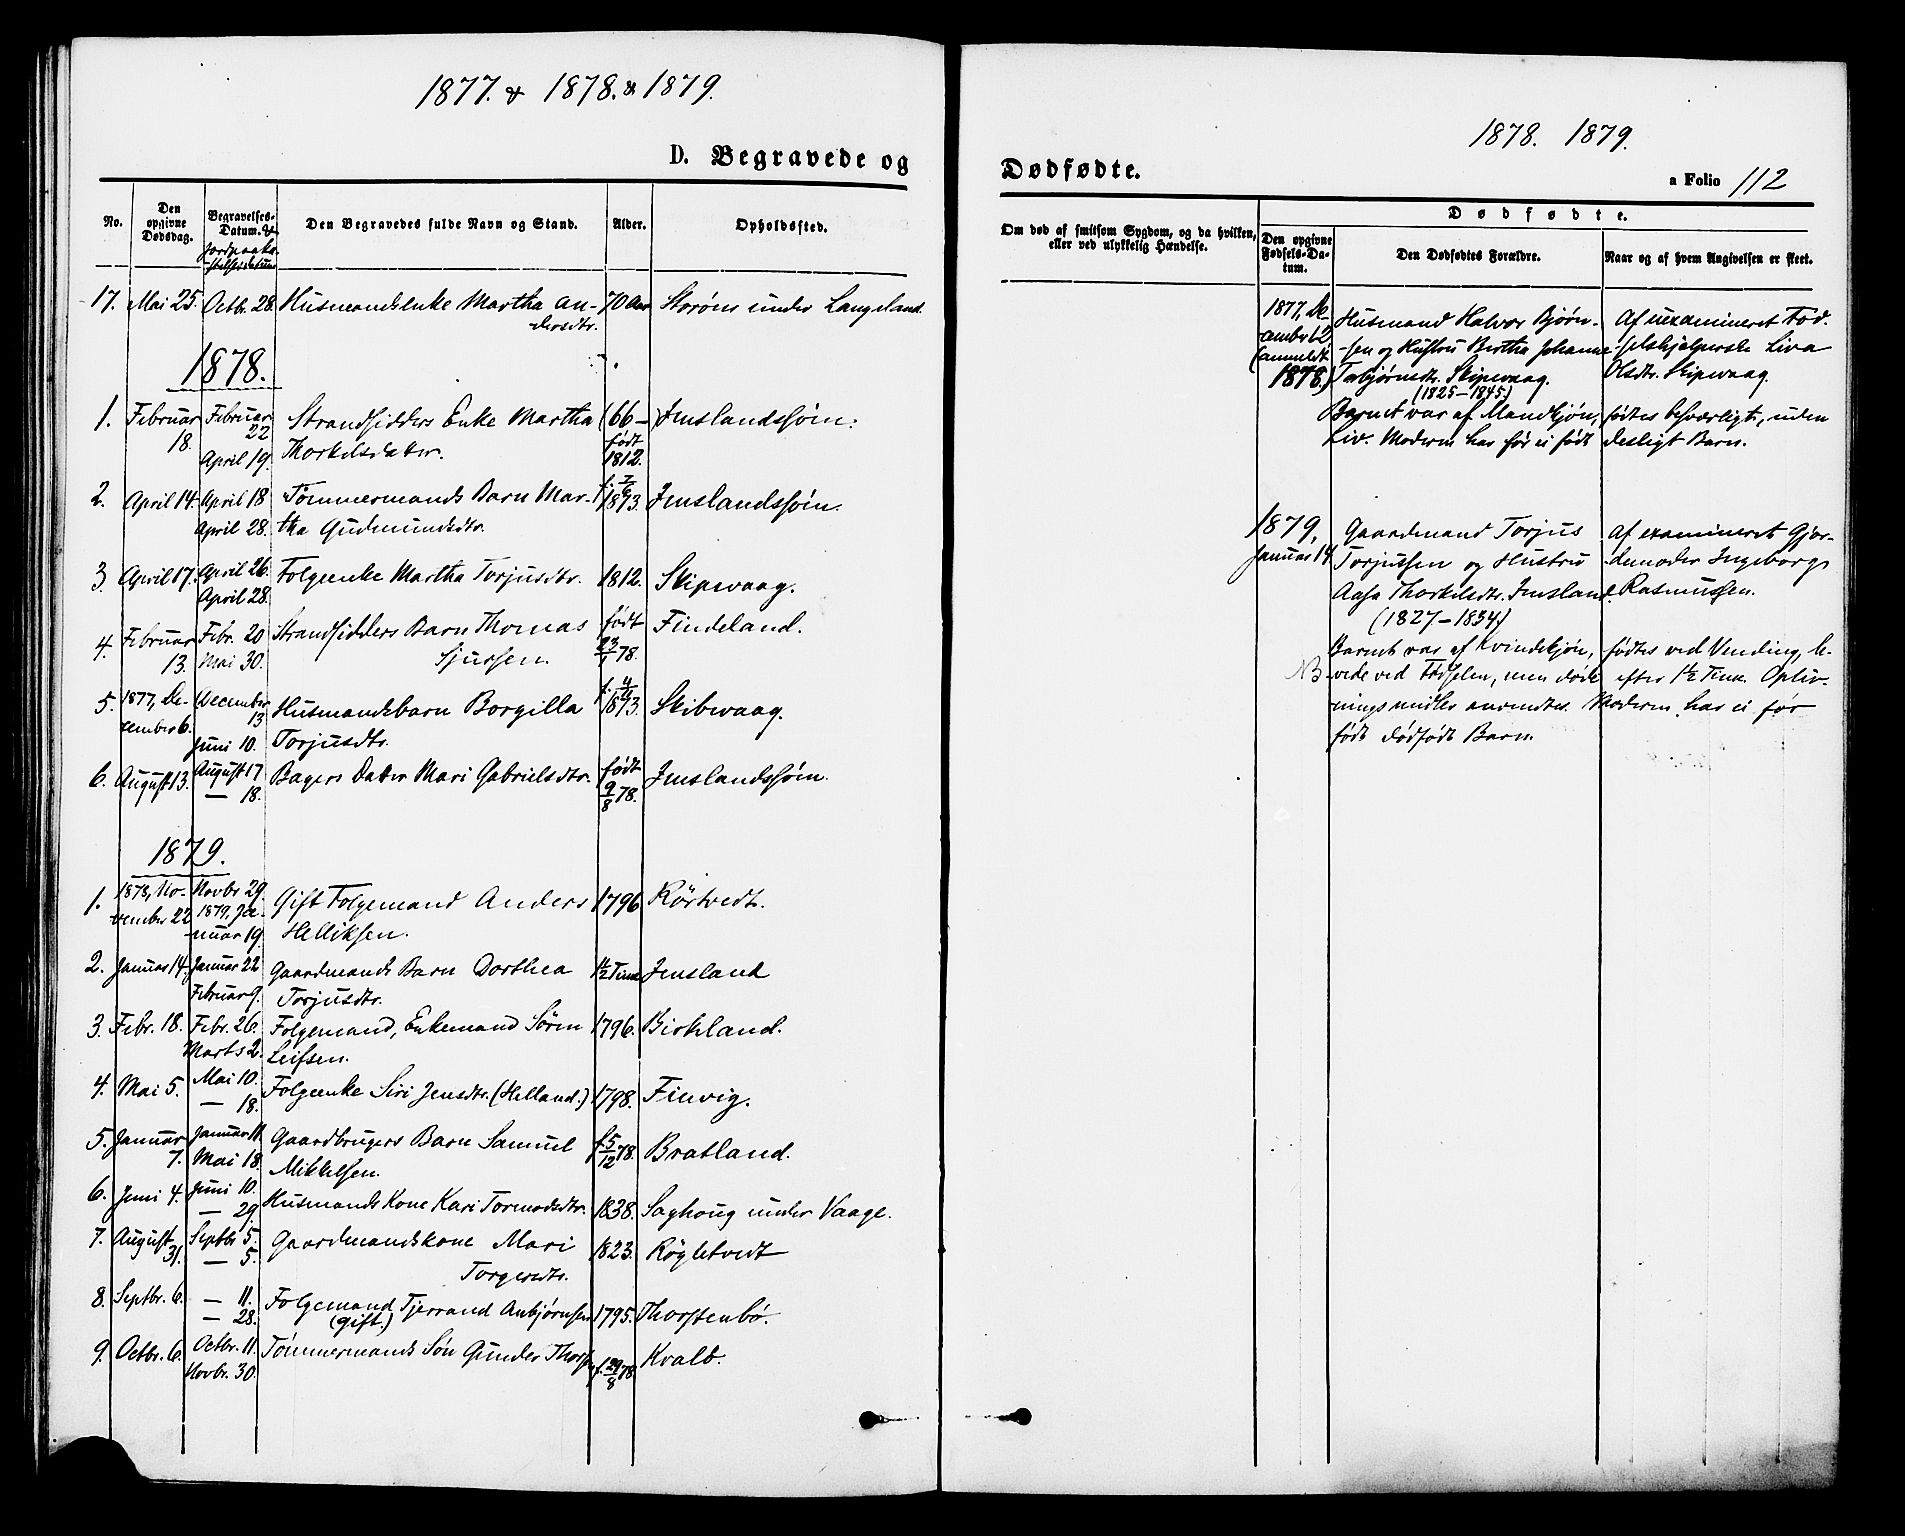 1877. & 1878. & 1879.
D. Begravede og
No.
Den opgivne Dødsdag.
Begravelses-Datum. &
Jordpaaka-
stelsesdatum
Den Begravedes fulde Navn og Stand.
Alder.
Opholdssted.
17. Mai 25. Octbr. 28. Husmandsenke Martha An- 70 Aar Storøm under Langeland.
dersdtr.
1878.
1. Februar Februar Strandsidders Enke Martha (66 – Imslandssjøen.
18. 22 Thorkilsdatter. født
April 19. 1812.
2. April 14. April 18 Tömmermands Barn Mar- f. 7/6 Imslandssjøen.
April 28. tha Gudmundsdtr. 1873.
3 April 17. April 26. Folgeenke Martha Torjusdtr. 1812. Skipevaag.
April 28.
4. Februar Febr. 20 Strandsidders Barn Thomas født Findeland.
13. Mai 30. Sjursen. 23/1 78.
5. 1877, De- December Husmandsbarn Borgilla f. 4/9 Skibevaag.
cember 6. 13 Torjusdtr. 1873.
Juni 10.
6. August 13. August 17 Bagers Datter Mari Gabrielsdtr. født Imslandssjøen.
— 18. 9/8 78.
1879.
1. 1878, No- Novbr 29. Gift Folgemand Anders 1796 Rörtvedt.
vember 22 1879, Ja- Helliksen.
nuar 19.
2. Januar 14. Januar 22 Gaardmands Barn Dorthea 1½ Time Imsland
Februar 9. Torjusdtr.
3. Febr. 18. Febr. 26. Folgemand, Enkemand Sören 1796. Birkeland.
Marts 2. Leifsen.
4. Mai 5. Mai 10. Folgeenke Siri Jensdtr. (Helland.) 1798. Finvig.
— 18.
5. Januar Januar 11. Gaardbrugers Barn Samuel f. 5/12 78. Bratland.
7. Mai 18. Mikkelsen.
6. Juni 4. Juni 10. Husmands Kone Kari Tormodsdtr. 1838. Saghoug under Vaage.
— 29.
7. August Septbr 5. Gaardmandskone Mari 1823. Rögletvedt
31. — 5. Torgersdtr.
8. Septbr. 6. — 11. Folgemand Tjerrand Anbjørnsen 1795. Thorstenbö.
— 28. (gift.)
9. Octbr. 6. Octbr. 11. Tömmermands Sön Gunder Thorsen f. 29/8 78. Kvalö.
Novbr. 30.
1878. 1879.
Dødfødte.
a Folio 112
Om død af smitsom Sygdom, og da hvilken, eller ved ulykkelig Hændelse.
Dødfødte.
Den opgivne Fødsels-Datum.
Den Dødfødtes Forældre.
Naar og af hvem Angivelsen er skeet.
1877, De- Husmand Halvor Bjørn- Af uexamineret Fød-
cember 12 -sen og Hustru Bertha Johanne -selshjelperske Liva
(anmeldt Torbjørnsdtr. Skipevaag. Olsdtr. Skipevaag.
1878.) (1825–1845)
Barnet var af Mandkjön, födtes besværligt, uden
Liv. Moderen har før ei födt desligt Barn.
1879, Gaardmand Torjus Af examineret Gjor-
Januar 14 Torjussen og Hustru demoder Ingeborg
Aasa Thorkelsdtr. Imsland. Rasmussen.
(1827–1834)
Barnet var af Kvindekjön, födtes ved Vending, le-
NB. vede ved Fødselen, men døde efter 1½ Time. Opliv-
ningsmidler anvendtes. Moderen har ei før
født dødfødt Barn.